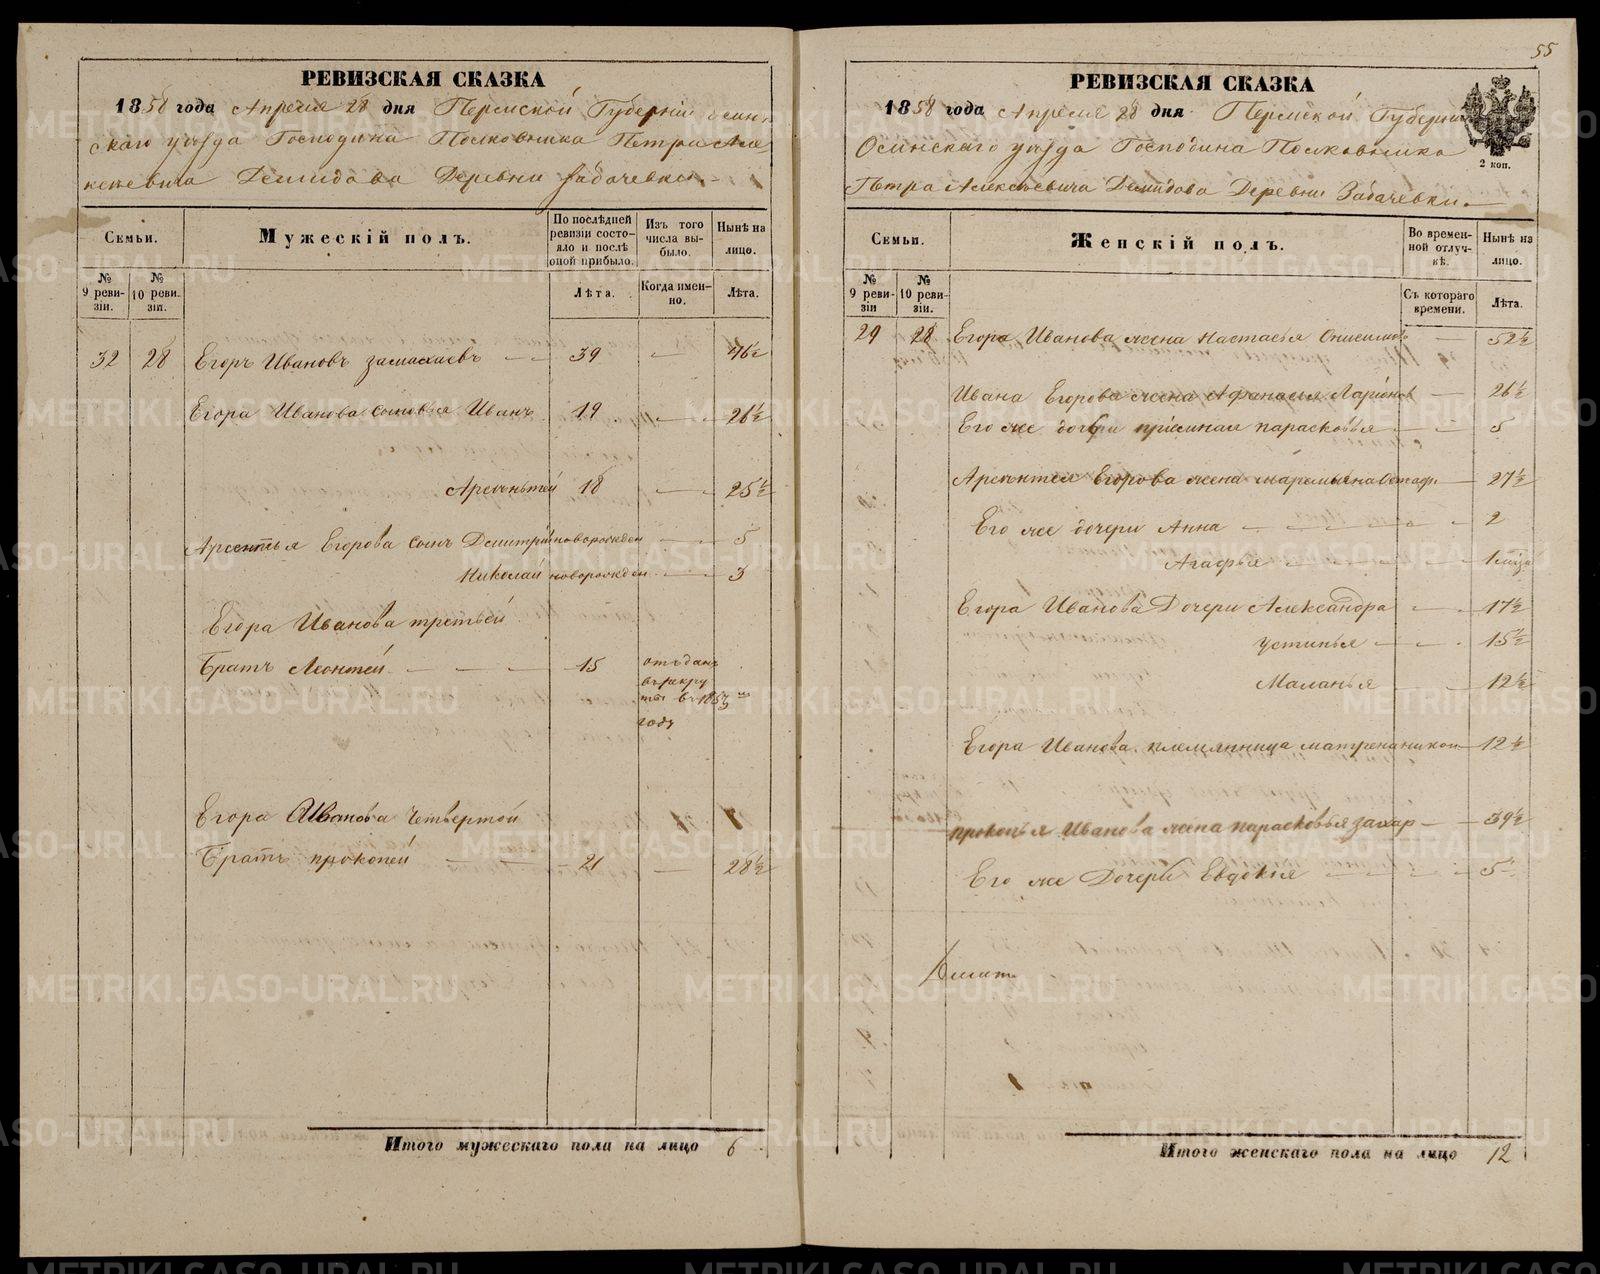 55
РЕВИЗСКАЯ СКАЗКА
1858 года Апреля 28 дня Пермской Губернiи Осин
скаго уѣзда Господина Полковника Петра Але
ксѣевича Демидова Деревни Забачевки.
Семьи.
Мужескiй полъ.
По послѣдней ревизiи состо-яло и послѣ оной прибыло.
Изъ того числа вы-было.
Нынѣ на лицо.
№ 9 реви-зiи.
№ 10 реви-зiи.
Лѣта.
Когда имен-но.
Лѣта.
32 28 Егоръ Ивановъ 39 46½
Егора Иванова сыновья Иванъ 19 26½
Арсентей 18 25½
Арсентья Егорова сынъ Дмитрiй новорожден 5
Николай новорожден 3
Егора Иванова третьей
Братъ Леонтей 15 отъданъ
въ рекру
ты въ 1853мъ
году
Егора Иванова Четвертой
Братъ прокопей 21 28½
Итого мужескаго пола на лицо 6
РЕВИЗСКАЯ СКАЗКА
1858 года Апреля 28 дня Пермской Губернiи
Осинскаго уѣзда Господина Полковника
Петра Алексѣевича Демидова Деревни Забачевки.
2 коп.
Семьи.
Женскiй полъ.
Во времен-ной отлуч-кѣ.
Нынѣ на лицо.
№ 9 реви-зiи
№ 10 реви-зiи.
Съ котораго времени.
Лѣта.
29 28 Егора Иванова жена Настасья Онисимов 52½
Ивана Егорова жена Афанасья Ларiонов 26½
Его же дочери прiемная парасковья 5
Арсентея Егорова жена маремьяна Остаф. 27½
Его же дочери Анна 2
Агафья 1
Егора Иванова Дочери Александра 17½
устинья 15½
Маланья 12½
Егора Иванова племянница матрена 12½
прокопья Иванова жена парасковья захар 39½
Его же Дочери Евдокiя 5
Итого женскаго пола на лицо 12
METRIKI.GASO-URAL.RU